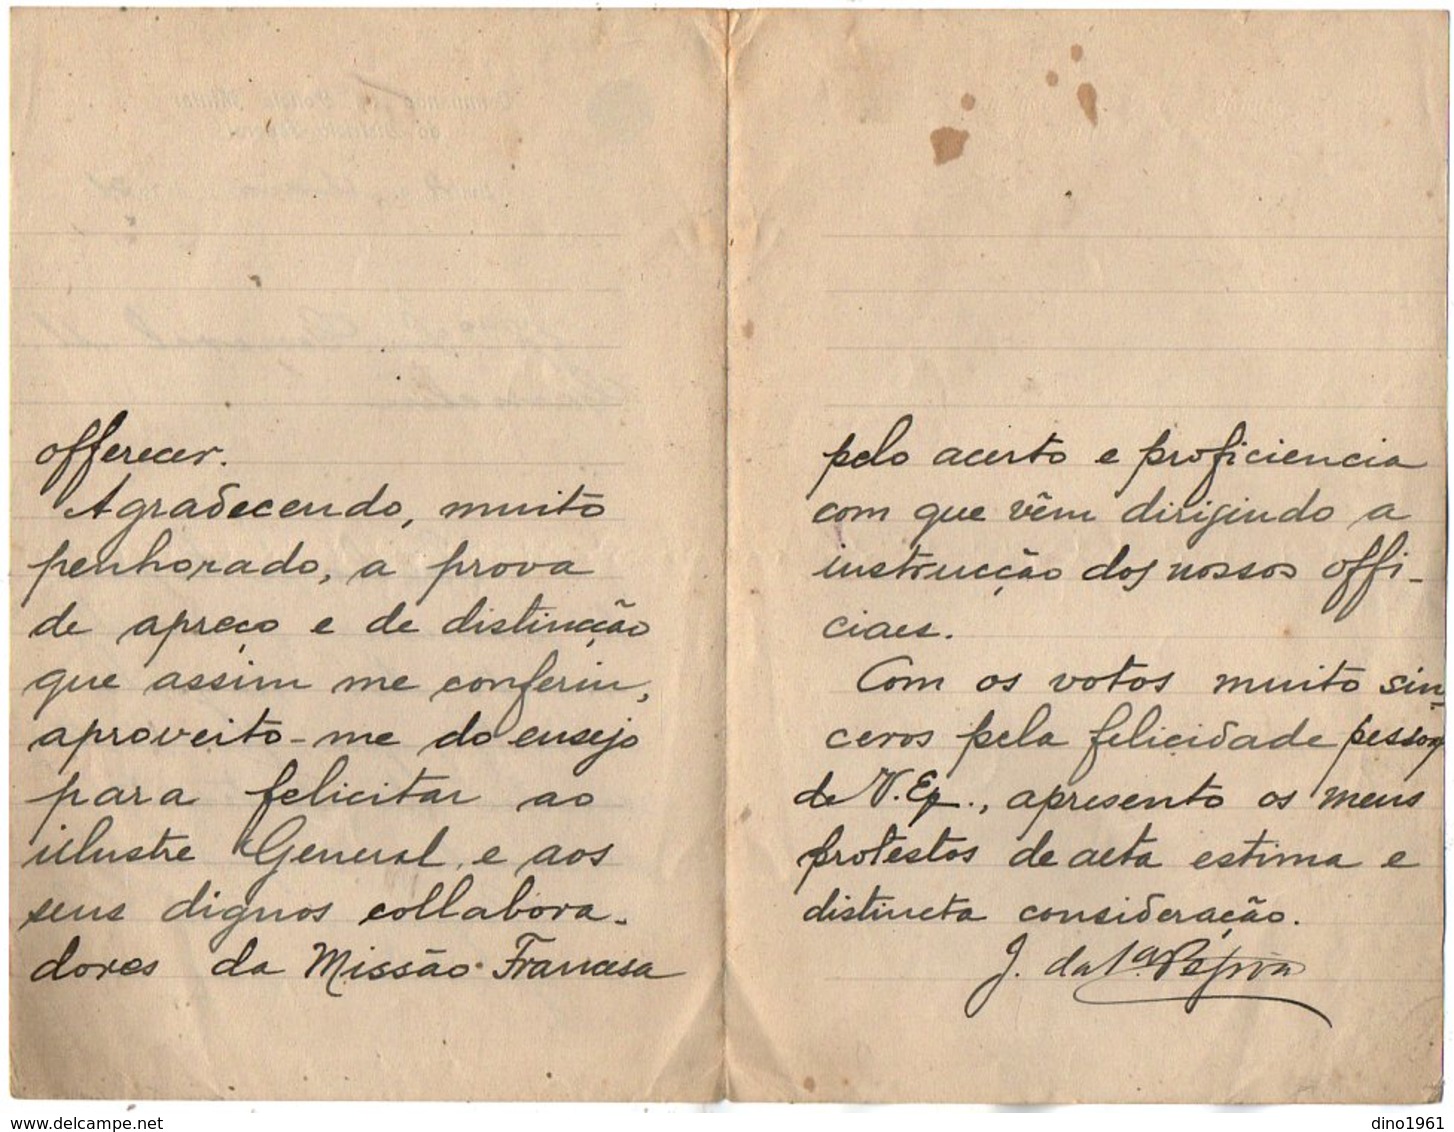 offerecer.
Agradecendo, muito
penhorado, a prova
de apreço e de distincção
que assim me conferiu,
aproveito-me do ensejo
para felicitar ao
illustre General, e aos
seus dignos collabora-
dores da Missão Francesa
pelo acerto e proficiencia
com que vêm dirigindo a
instrucção dos nossos offi-
ciaes.
Com os votos muito sin-
ceros pela felicidade pessoal
de V. Ex., apresento os meus
protestos de alta estima e
distincta consideração.
J. da
delcampe.net
dino1961